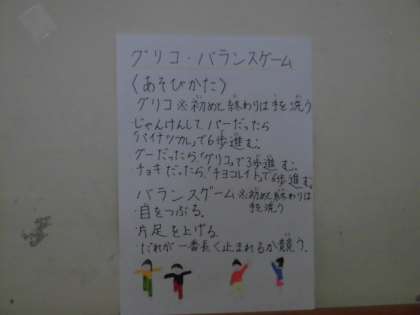 グリコ・バランスゲーム
〈あそびかた〉
グリコ ※初めと終わりは手を洗う
じゃんけんして パーだったら
「パイナツプル」で6歩進む。
グーだったら「グリコ」で3歩進む。
チョキだったら、「チョコレイト」で6歩進む。
バランスゲーム ※初めと終わりは
手を洗う
・目をつぶる。
・片足を上げる。
だれが一番長く止まれるか競う。